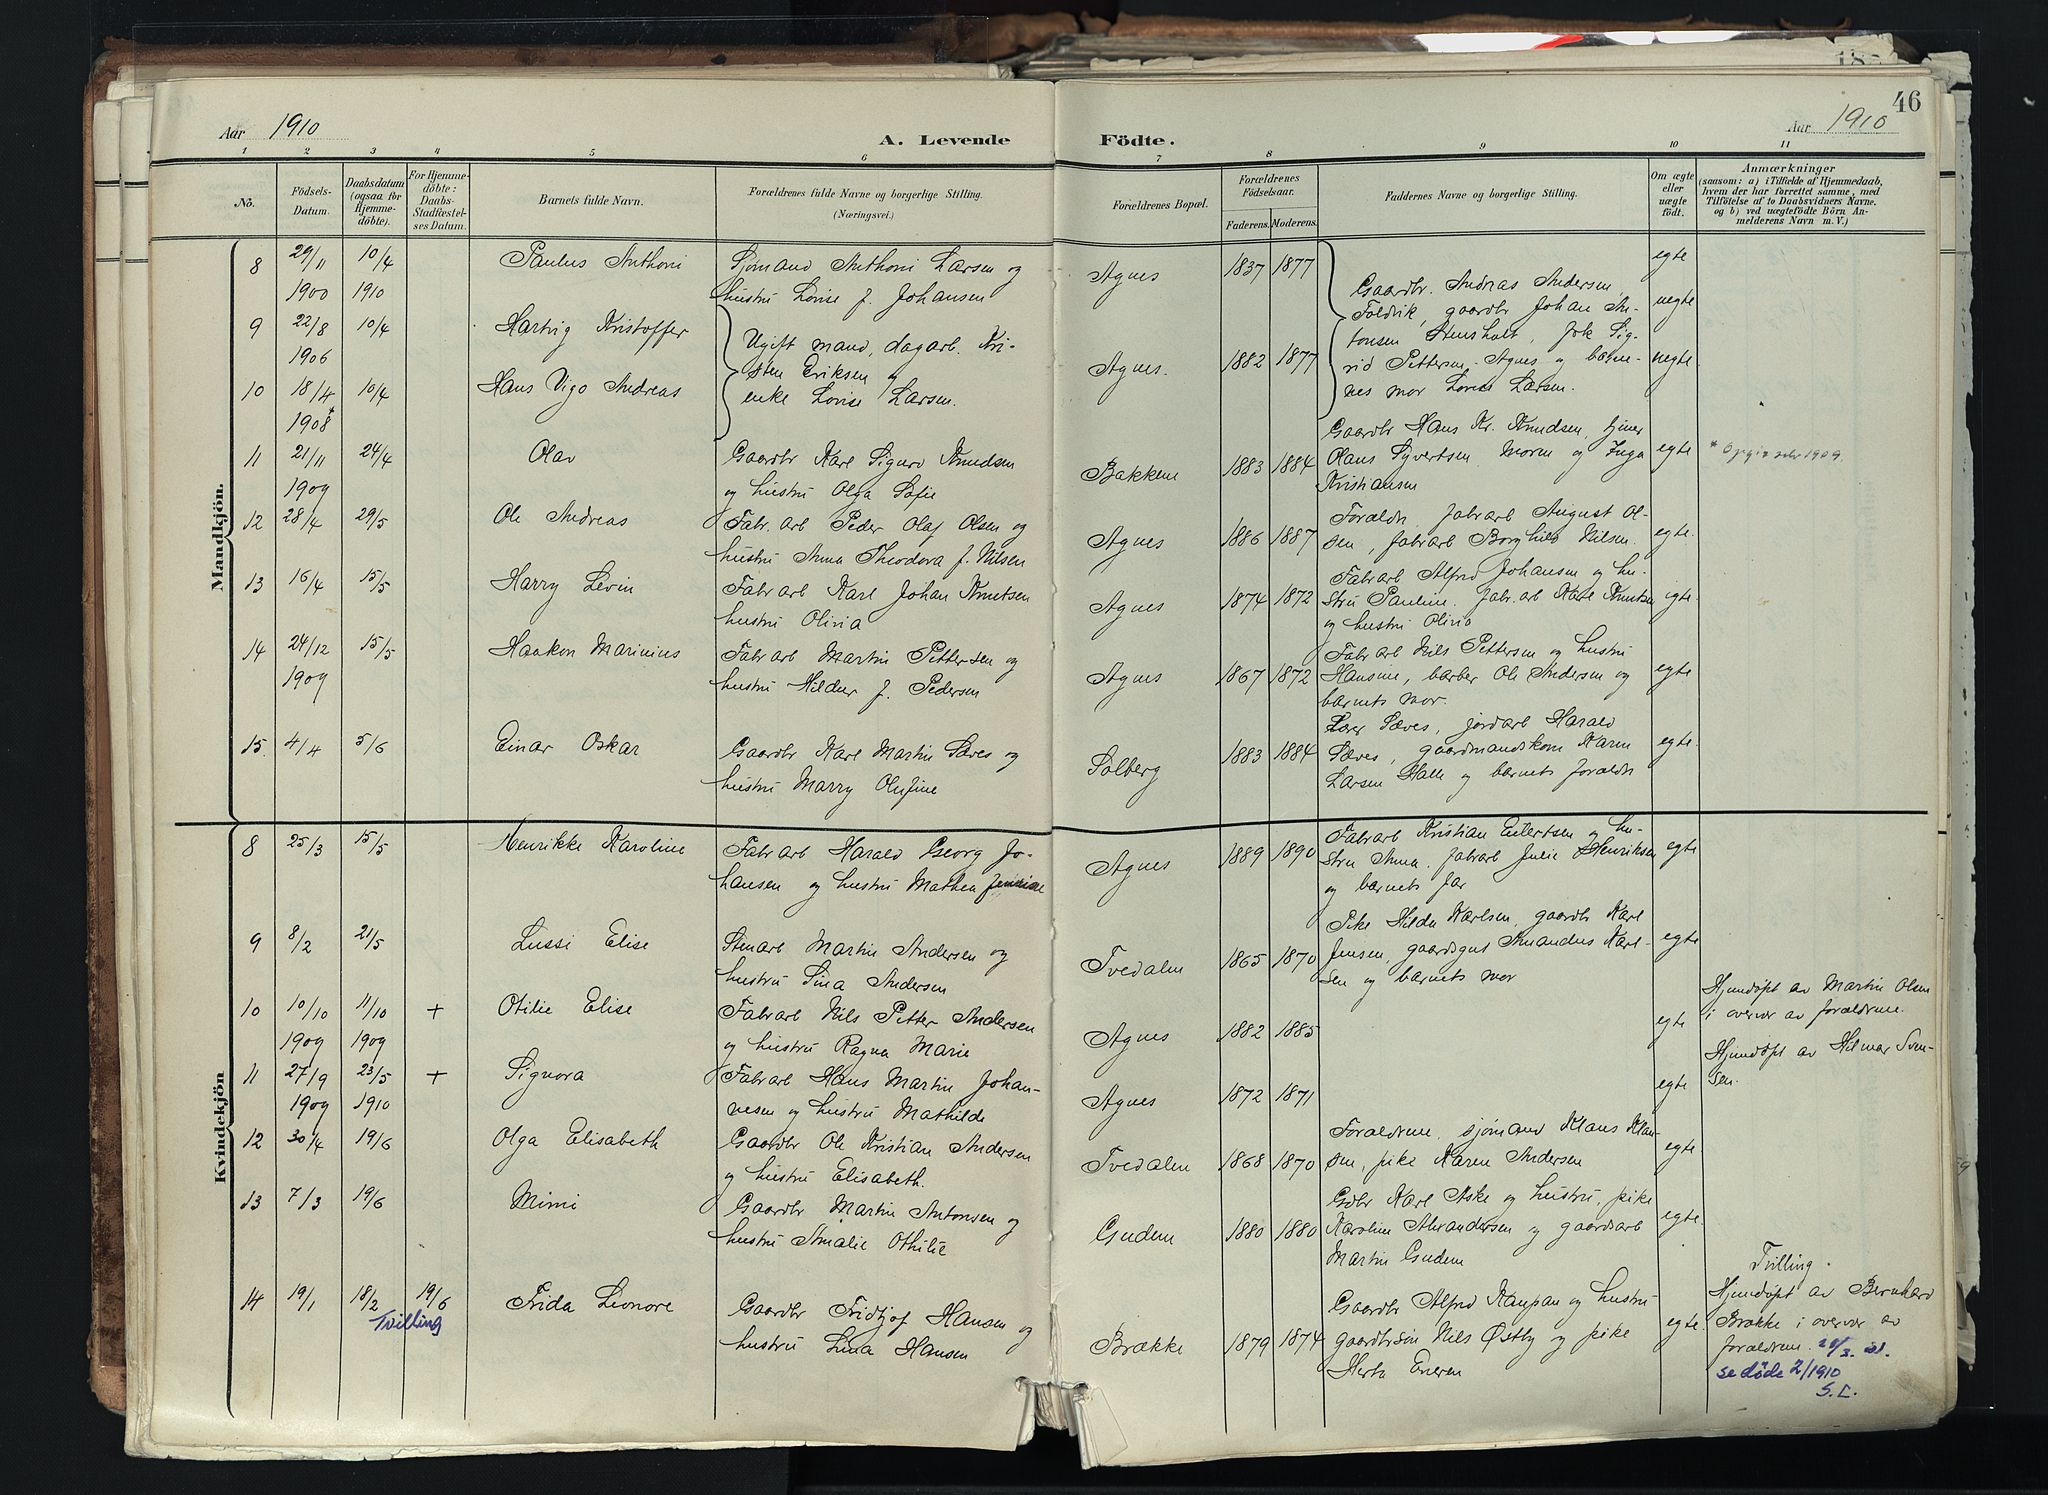 46
Aar 1910
A. Levende
Födte.
Aar 1910
1 2 3 4 5 6 7 8 9 10 11
No.
Födsels-
Datum.
Daabsdatum
(ogsaa for
Hjemme-
döbte).
For Hjemme-
döbte:
Daabs-
Stadfæstel-
ses Datum.
Barnets fulde Navn.
Forældrenes fulde Navne og borgerlige Stilling.
(Næringsvei.)
Forældrenes Bopæl.
Forældrenes
Födselsaar.
Faderens. Moderens.
Faddernes Navne og borgerlige Stilling.
Om ægte
eller
uægte
født.
Anmærkninger
(saasom: a) i Tilfælde af Hjemmedaab,
hvem der har forrettet samme, med
Tilföielse af to Daabsvidners Navne.
og b) ved uægtefödte Börn An-
melderens Navn m. V.)
Mandkjön.
8 29/11 1900 10/4 1910 Paulus Anthoni
Sjømand Anthoni Larsen og
hustru Lovise f. Johansen
Agnes 1837 1877 egte
9 22/8 1906 10/4 Hartvig Kristoffer
10 18/4 1908* 10/4 Hans Vigo Andreas
Ugift mand, dagarb. Kri-
sten Eriksen og
enke Lovise Larsen.
Agnes. 1882 1877
Gaardbr. Andreas Andersen
Foldvik, gaardbr Johan An-
tonsen Stensholt, frk Sig-
rid Pettersen Agnes og barne-
nes mor Lovise Larsen.
uegte
uegte
11 21/11 1909 24/4 Olav
Gaardbr Karl Sigurd Knudsen
og hustru Olga Sofie
Bakkene 1883 1884
Gaardbr Hans Kr. Knudsen, tjener
Olaus Syvertsen Moren og Inga
Kristiansen
egte
* Opgis selv 1909.
12 28/4 29/5 Ole Andreas
Fabr. arb Peder Olaf Olsen og
hustru Anna Theodora f. Nilsen
Agnes 1886 1887
Foraldr. fabrarb August Ol-
sen, fabrarb Borghild Nilsen.
egte.
13 16/4 15/5 Harry Levin
Fabrarb Karl Johan Knutsen
hustru Olivia
Agnes 1874 1872
Fabrarb Alfred Johansen og hu-
stru Pauline. fabr. arb Karl Knutsen
og hustru Olivia
egte.
14 24/12 1909 15/5 Haakon Marinius
Fabrarb Martin Pettersen og
hustru Hildur f. Pedersen
Agnes 1867 1872
Fabrarb Nils Pettersen og hustru
Hansine, barber Ole Andersen og
barnets mor.
egte
15. 4/4 5/6 Einar Oskar
Gaardbr Karl Martin Sæves og
hustru Marry Olufine
Solberg 1883 1884
Lars Sæves, jordarb Harald
Sæves, gaardmandskone Karen
Larsen Halle og barnets foraldr
egte.
Kvindekjön
8 25/3 15/5 Henrikke Karoline
Fabrarb Harald Georg Jo-
hansen og hustru Mathea
Agnes 1889 1890
Fabrarb Kristian Eilertsen og hu-
stru Anna. fabrarb Julie Henriksen
og barnets far
egte
9 8/2 21/5 Lussi Elise
Stenarb Martin Andersen og
hustru Sina Andersen
Tvedalen 1865 1870
Pike Hilda Karlsen, gaardbr Karl
Jensen, gaardsgut Amandus Karl-
sen og barnets mor
egte
10 10/10 1909 11/10 1909 + Otilie Elise
Fabrarb Nils Petter Andersen
og hustru Ragna Marie
Agnes 1882 1885 egte
Hjemdøpt av Martin Olsen
i overvær av forældrene.
11 27/9 1909 23/5 1910 + Signora
Fabrarb Hans Martin Johan-
nesen og hustru Mathilde
Agnes 1872 1871 egte
Hjemdøpt av Hilmar Sven-
sen.
12 30/4 19/6 Olga Elisabeth
Gaardbr Ole Kristian Andersen
og hustru Elisabeth.
Tvedalen 1868 1870
Foraldrene, sjømand Klaus Klau-
sen, pike Karen Andersen
egte
13 7/3 19/6 Mimi
Gaardbr Martin Antonsen og
hustru Amalie Othilie
Gudem 1880 1880
Gdbr Karl Aske og hustru, pike
Karoline Alexandersen og gaardsarb
Martin Gudem
egte.
14 19/1 18/2 19/6 Frida Leonore
Tvilling
Gaardbr Fridtjof Hansen og
hustru Lina Hansen
Brække 1879 1874
Gaardbr Alfred Kaupan og hustru
gaardbrsøn Nils Østby og pike
Herta Eneren
egte.
Tvilling.
Hjemdøpt av Bernhard
Brække i overvær av
forældrene.
se døde 2/1910
S. L.